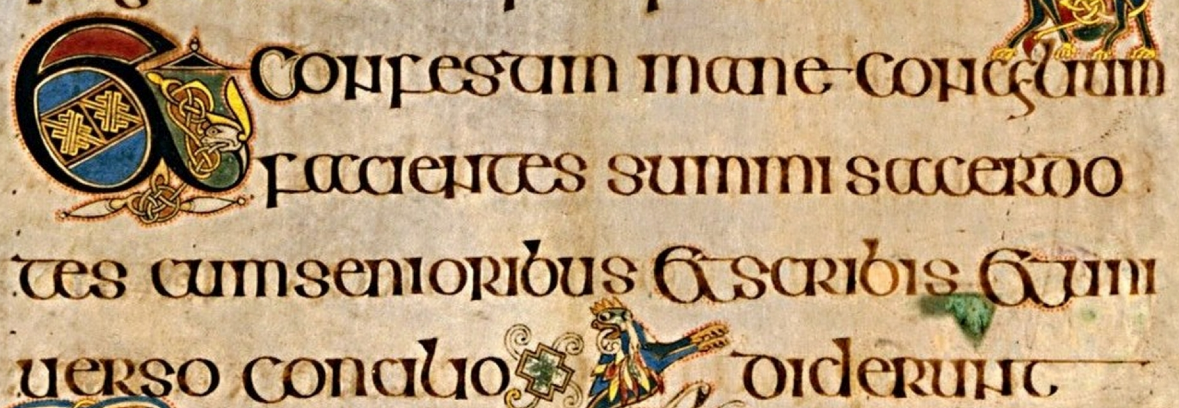 Et confestim mane concilium
facientes summi sacerdo
tes cum senioribus et scribis et uni
uerso concilio diderunt